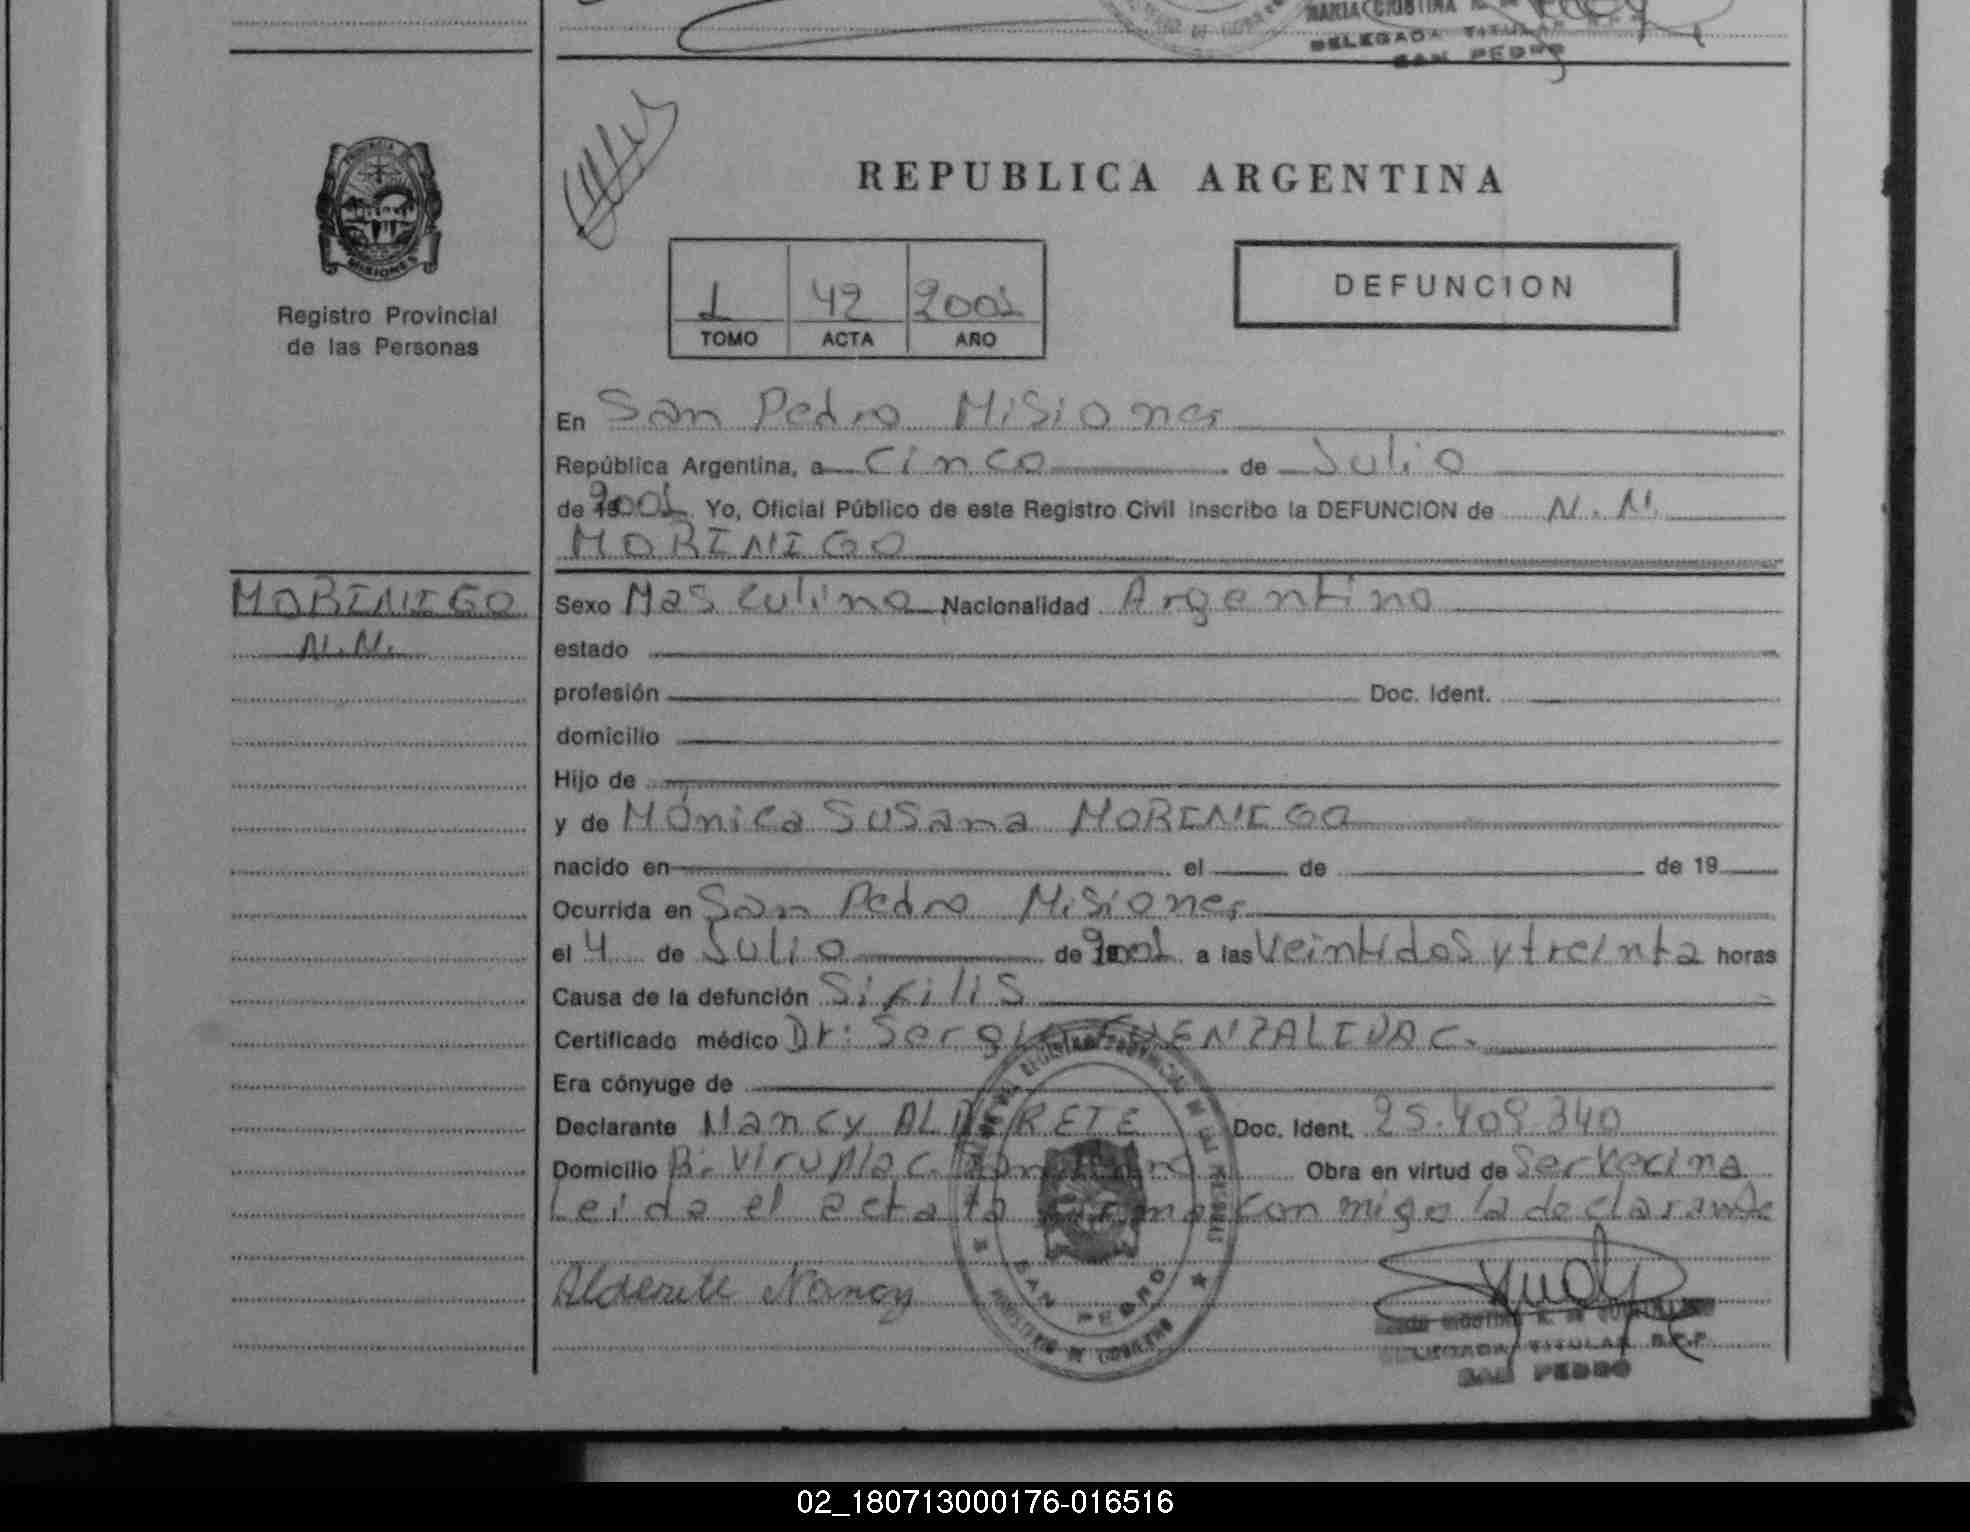 DELEGADA TITULAR
SAN PEDRO
PROVINCIA DE
MISIONES
Registro Provincial
de las Personas
REPUBLICA ARGENTINA
1 42 2001
TOMO ACTA AÑO
DEFUNCION
En San Pedro Misiones
República Argentina, a Cinco de Julio
de 2001 Yo, Oficial Público de este Registro Civil inscribo la DEFUNCION de N.N.
MORINIGO
MORINIGO
N.N.
Sexo Masculino Nacionalidad Argentino
estado
profesión Doc. Ident.
domicilio
Hijo de
y de Mónica Susana MORINIGO
nacido en el de de 19
Ocurrida en San Pedro Misiones
el 4 de Julio de 2001 a las Veintidos y treinta horas
Causa de la defunción Sifilis
Certificado médico Dr: Sergio FUENZALIDA C.
Era cónyuge de
Declarante Nancy ALDERETE Doc. Ident. 25.409.340
Domicilio B: Viruplac. San Pedro Obra en virtud de Ser vecina
Leida el acta la firma conmigo la declarante
Alderete Nancy
SAN PEDRO
MINISTERIO DE GOBIERNO
DELEGADA TITULAR R.P.P.
SAN PEDRO
02_180713000176-016516